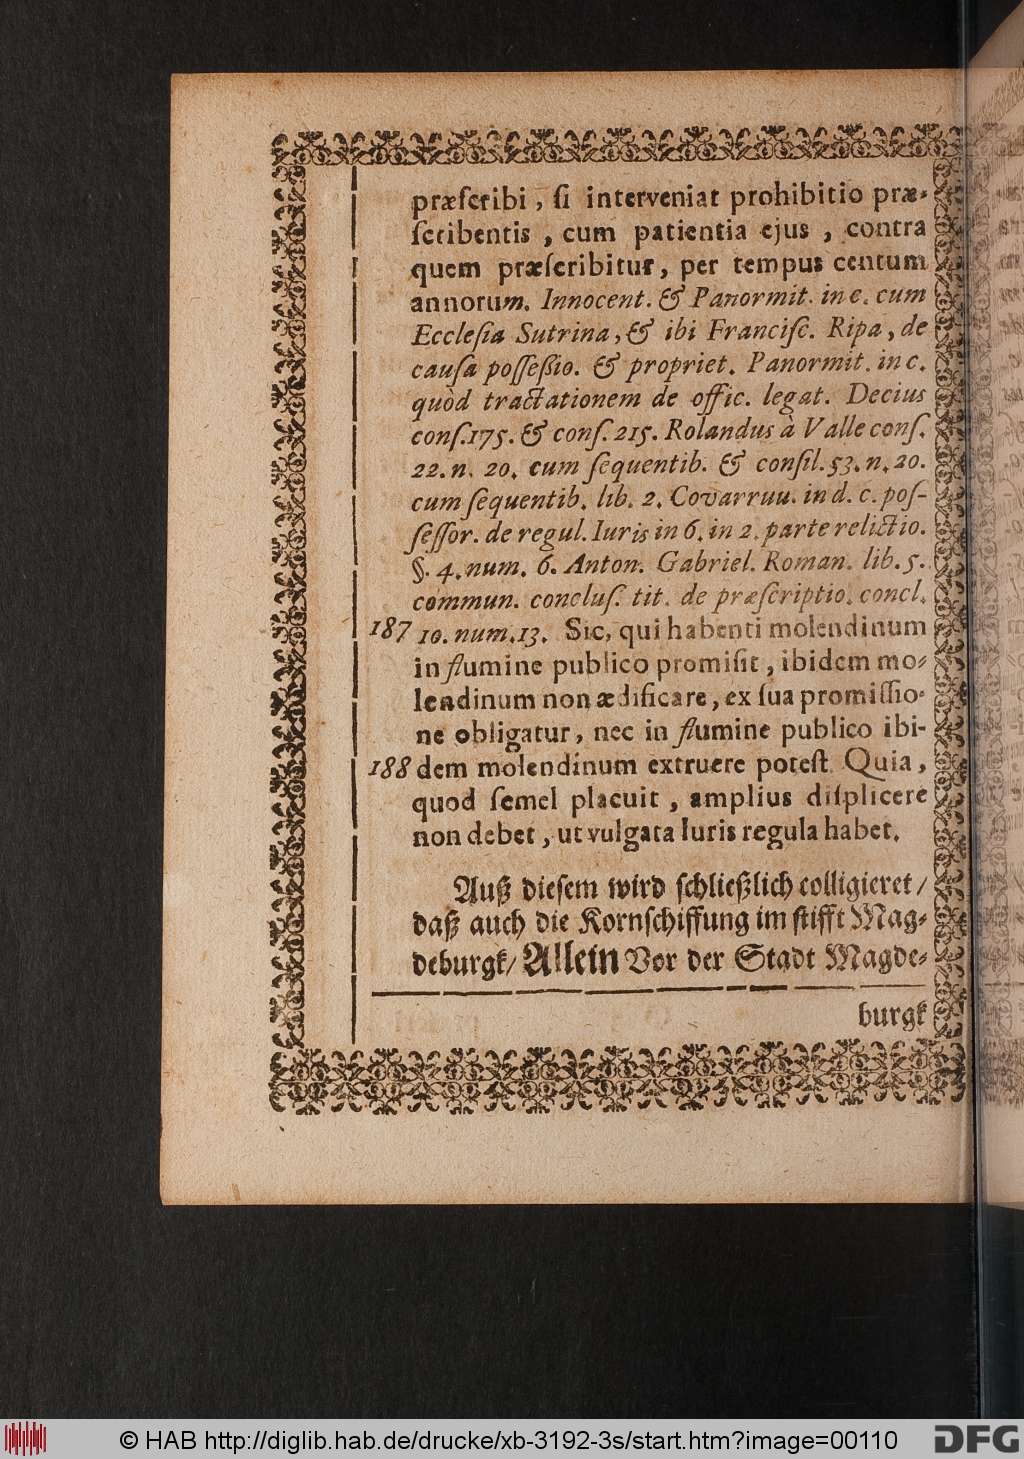 præſcribi, ſi interveniat prohibitio præ-
ſcribentis, cum patientia ejus, contra
quem præſcribitur, per tempus centum
annorum. Innocent. & Panormit. in c. cum
Eccleſia Sutrina, & ibi Franciſc. Ripa, de
cauſa poſſeßio. & propriet. Panormit. in c.
quòd tractationem de offic. legat. Decius
conſ. 175. & conſ. 215. Rolandus à Valle conſ.
22. n. 20. cum ſequentib. & conſil. 53. n. 20.
cum ſequentib. lib. 2. Covarruu. in d. c. poſ-
ſeſſor. de regul. Iuris in 6. in 2. parte relictio.
§. 4. num. 6. Anton. Gabriel. Roman. lib. 5.
commun. concluſ. tit. de præſcriptio. concl.
187 10. num. 13. Sic, qui habenti molendinum
in flumine publico promiſit, ibidem mo-
lendinum non ædificare, ex ſua promiſſio-
ne obligatur, nec in flumine publico ibi-
188 dem molendinum extruere poteſt. Quia,
quod ſemel placuit, amplius diſplicere
non debet, ut vulgata Iuris regula habet.
Auß dieſem wird ſchließlich colligieret /
daß auch die Kornſchiffung im ſtifft Mag-
deburgk/ Allein Vor der Stadt Magde-
burgk
© HAB http://diglib.hab.de/drucke/xb-3192-3s/start.htm?image=00110
DFG